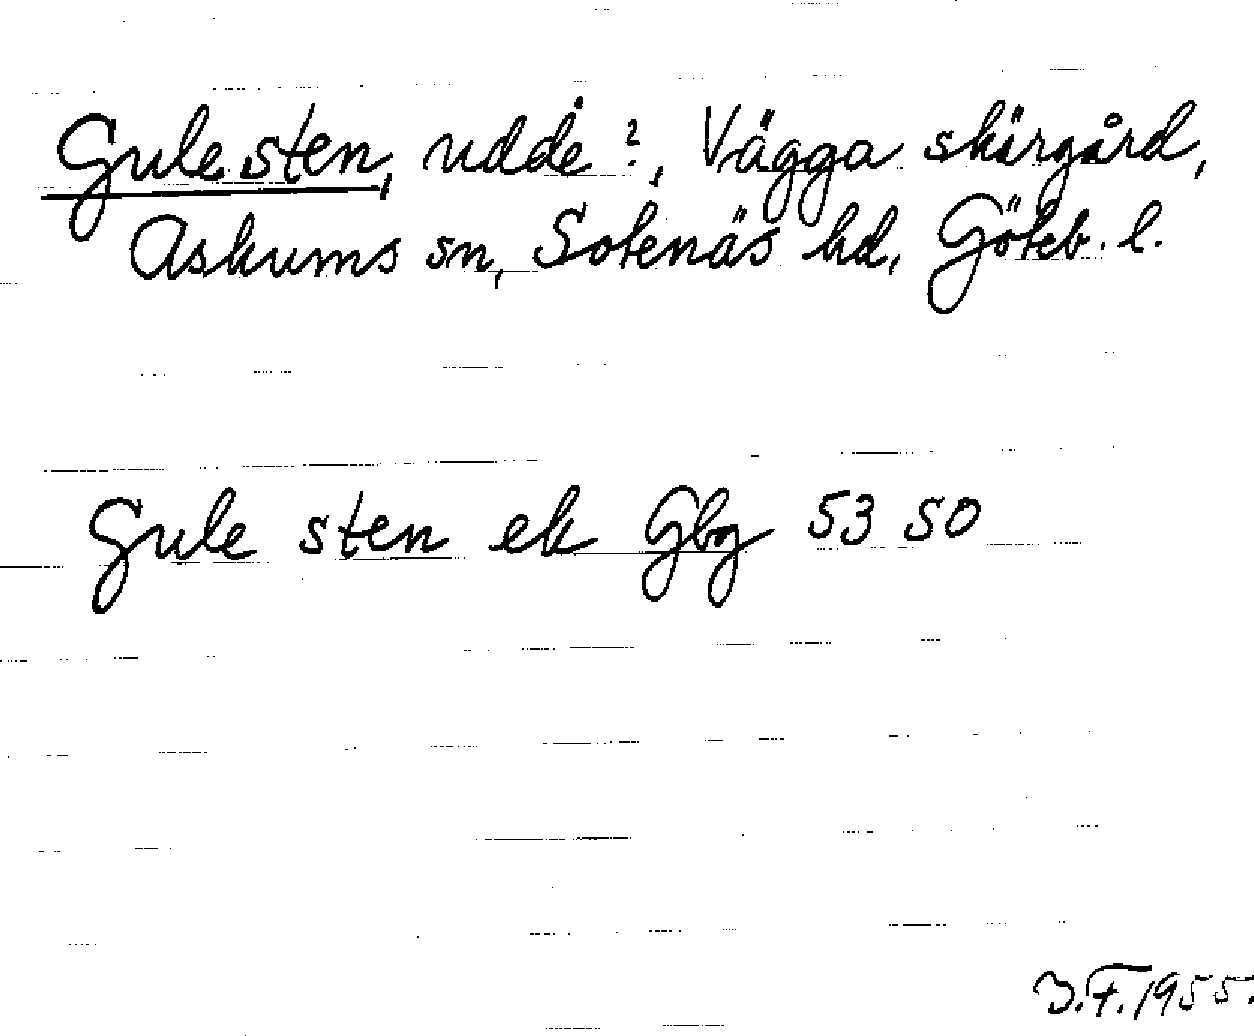 Gule sten, udde ?, Vägga skärgård,
Askums sn, Sotenäs hd, Göteb. l.
Gule sten ek Gbg 53 50
J.F. 1955.